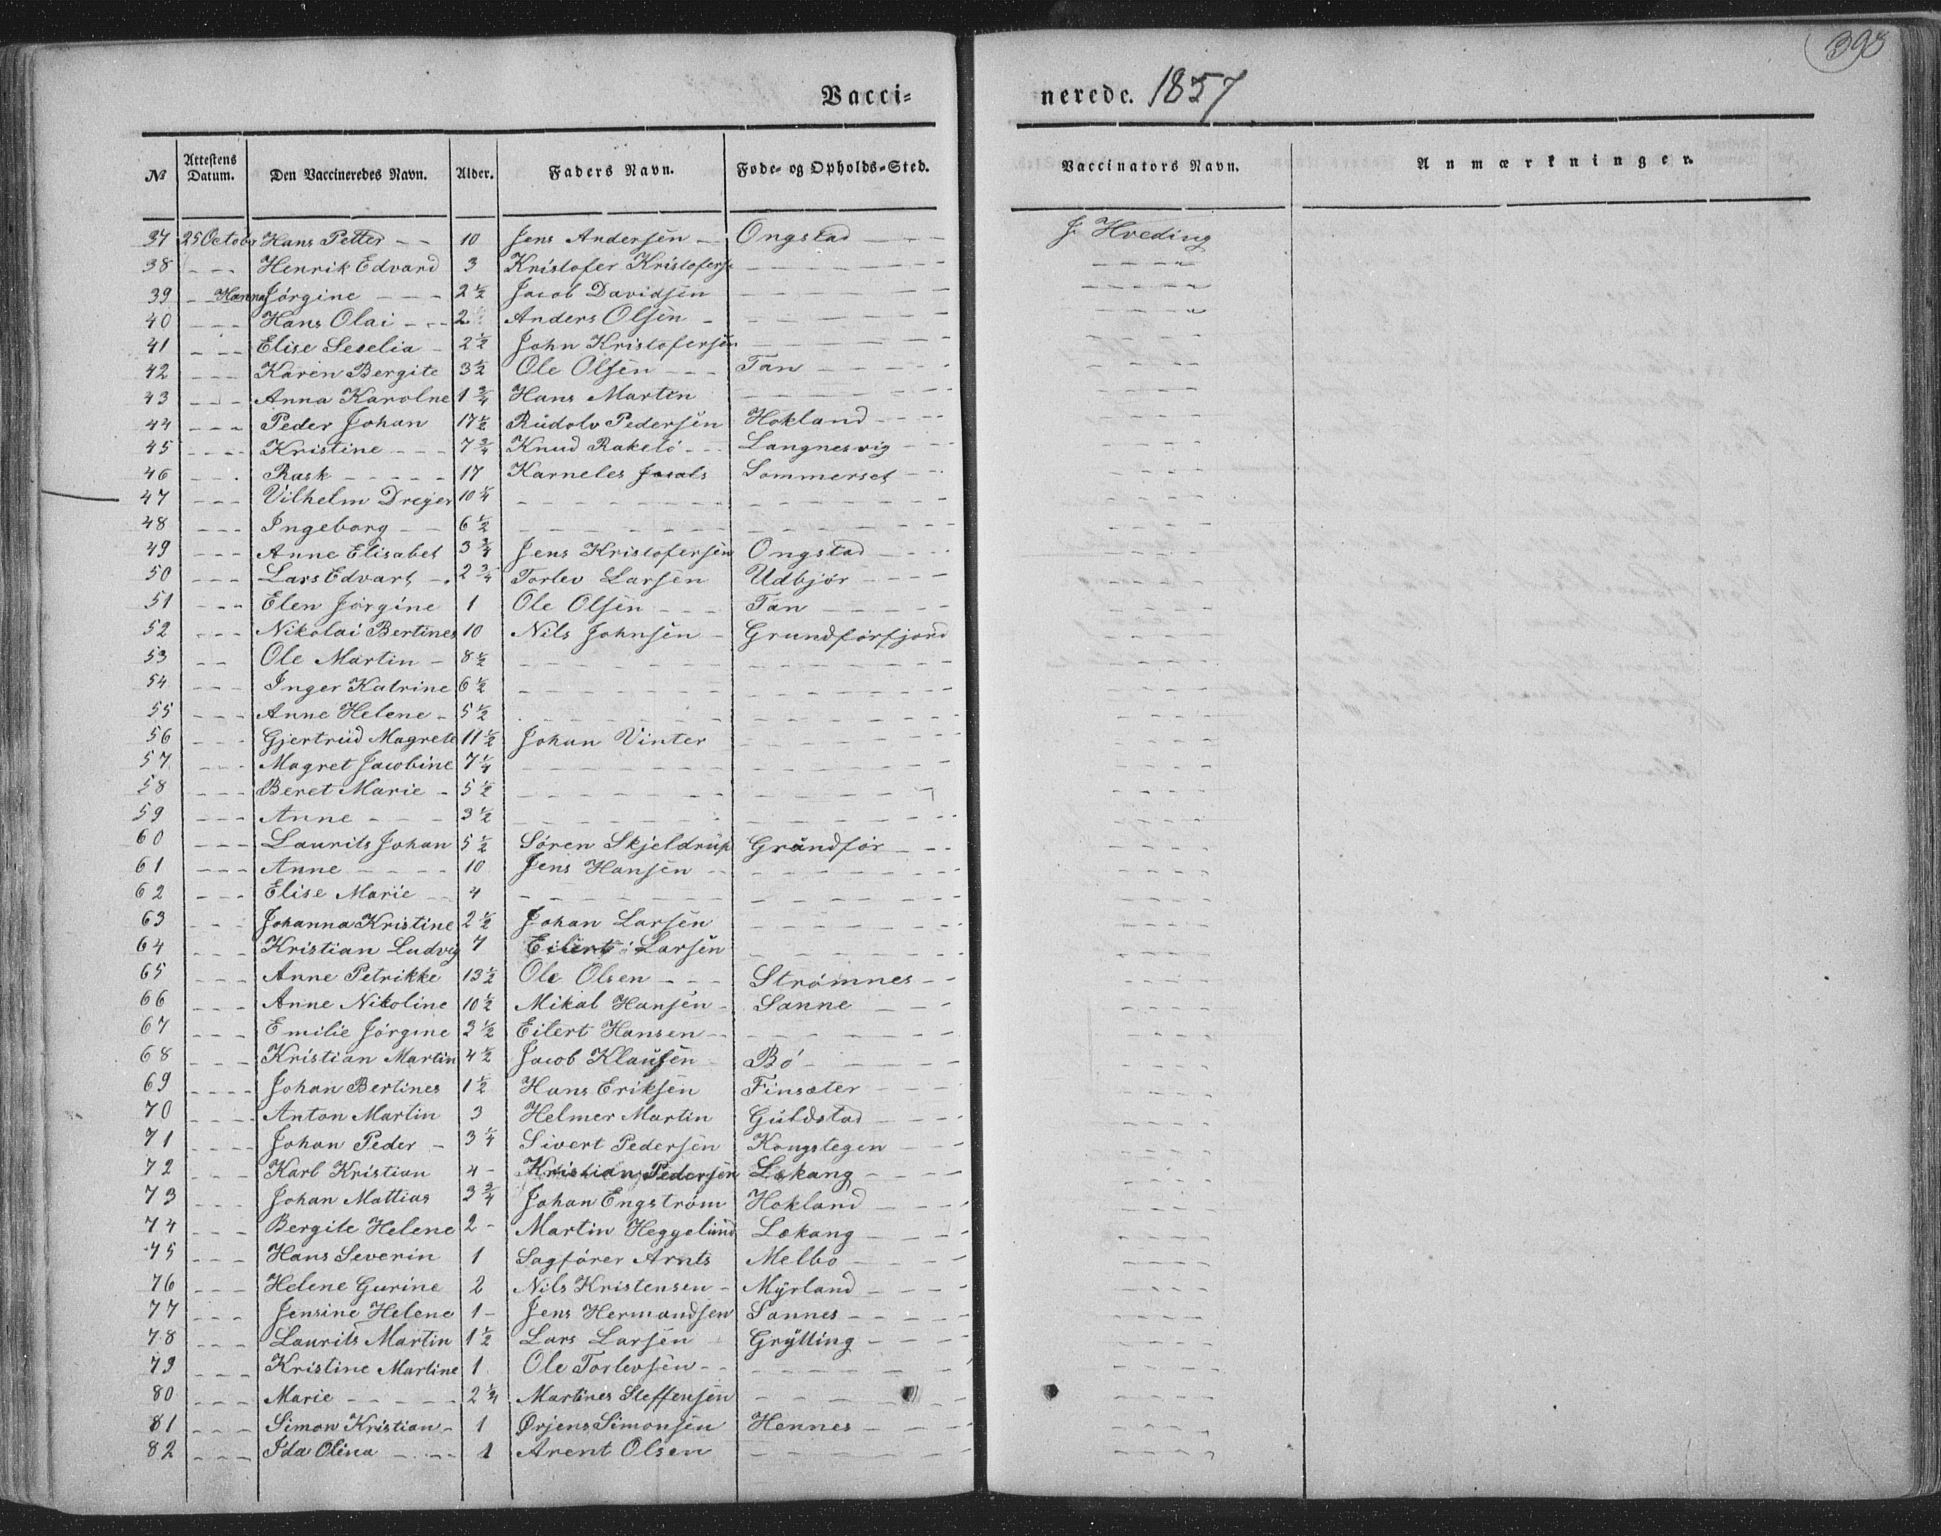 393
Vacci=
nerede. 1857
No Attestens Datum. Den Vaccineredes Navn. Alder. Faders Navn. Føde- og Opholds-Sted. Vaccinators Navn. Anmærkninger.
37 25 Octobr Hans Petter - - 10 Jens Andersen - Ongstad - - - J. Hveding
38 - - - Henrik Edvard 3 Kristofer Kristofers - - - - -
39 - Hanna Jørgine - - - 2 1/2 Jacob Davidsen - - - - -
40 - - - Hans Olai - - - 2 Anders Olsen - - - - -
41 - - - Elise Seselia - 2 1/2 John Kristofersen - - - - -
42 - - - Karen Bergite 3 1/2 Ole Olsen - - - Tan - - - - -
43 - - - Anna Karolne 1 3/4 Hans Martin - - - - -
44 - - - Peder Johan 17 1/2 Rudolv Pedersen Hokland - - - - -
45 - - - Kristine - - - 7 3/4 Knud Rakelø - - Langnesvig - - - - -
46 - - - Rask - - - - 17 Karneles Jacals Sommerset - - - - -
47 - - - Vilhelm Dreyer 10 1/4 - - - - -
48 - - - Ingeborg - - 6 1/2 - - - - -
49 - - - Anne Elisabet 3 3/4 Jens Kristofersen Ongstad - - - - -
50 - - - Lars Edvart - 2 3/4 Torlev Larsen Udbjør - - - - -
51 - - - Elen Jørgine 1 Ole Olsen - - - Tan - - - - -
52 - - - Nikolai Bertines 10 Nils Johnsen - Grundførfjord - - - -
53 - - Ole Martin - 8 1/2 - - - - -
54 - - - Inger Katrine 6 1/2 - - - - -
55 - - - Anne Helene - 5 1/2 - - - - -
56 - - - Gjertrud Magrete 11 1/2 Johan Vinter - - - - -
57 - - - Magret Jacobine 7 1/4 - - - - -
58 - - - Beret Marie - 5 1/2 - - - - -
59 - - - Anne - - - - 3 1/2 - - - - -
60 - - - Laurits Johan 5 1/2 Søren Skjeldrup Grundfør - - - - -
61 - - - Anne - - - - 10 Jens Hansen - - - - -
62 - - - Elise Marie - - 4 - - - - -
63 - - Johanna Kristine 2 1/2 Johan Larsen - - - - -
64 - - - Kristian Ludvig 7 Eilert Larsen - - - - -
65 - - - Anne Petrikke 13 1/2 Ole Olsen - - - Strømnes - - - -
66 - - - Anne Nikoline 10 1/2 Mikal Hansen - Sanne - - - - -
67 - - - Emilie Jørgine 2 1/2 Eilert Hansen - - - - -
68 - - - Kristian Martin 4 1/2 Jacob Klausen - Bø - - - - -
69 - - - Johan Bertines 1 1/2 Hans Eriksen Finsæter - - - - -
70 - - - Anton Martin 3 Helmer Martin Guldstad - - - - -
71 - - - Johan Peder - 3 1/4 Sivert Pedersen Kongstegen - - - - -
72 - - - Karl Kristian 4 - Kristian Pedersen Lekang - - - - -
73 - - - Johan Mattias 3 3/4 Johan Engstrøm Hokland - - - - -
74 - - - Bergite Helene 2 - Martin Heggelund Lekang - - - - -
75 - - - Hans Severin 1 Sagfører Arnts Melbo - - - - -
76 - - - Helene Gurine 2 Nils Kristensen - Myrland - - - - -
77 - - - Jensine Helene 1 - Jens Hermandsen Sannes - - - - -
78 - - - Laurits Martin 1 1/2 Lars Larsen Grytting - - - - -
79 - - - Kristine Martine 1 Ole Torlevsen - - - - -
80 - - - Marie - - - - 2 1/4 Martines Steffensen - - - - -
81 - - - Simon Kristian - 1 Ørjens Simonsen Hennes - - - - -
82 - - - Ida Olina - - - 1 Arent Olsen - - - - -